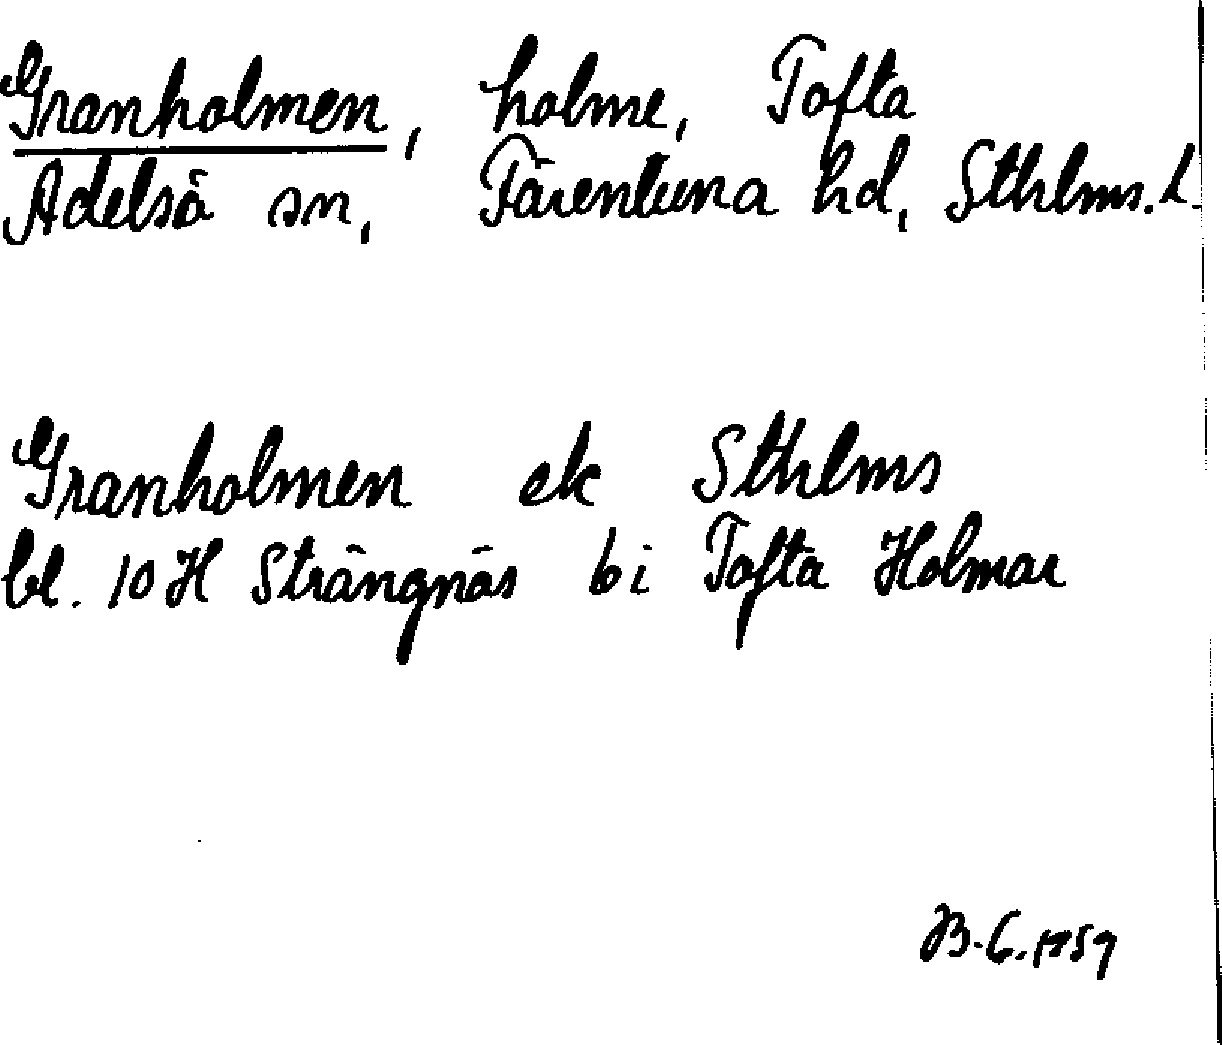 Granholmen, holme, Tofta
Adelsö sn, Färentuna hd, Sthlms. L.
Granholmen ek Sthlms
bl. 10 H Strängnäs bi Tofta Holmar
B-G. 1959